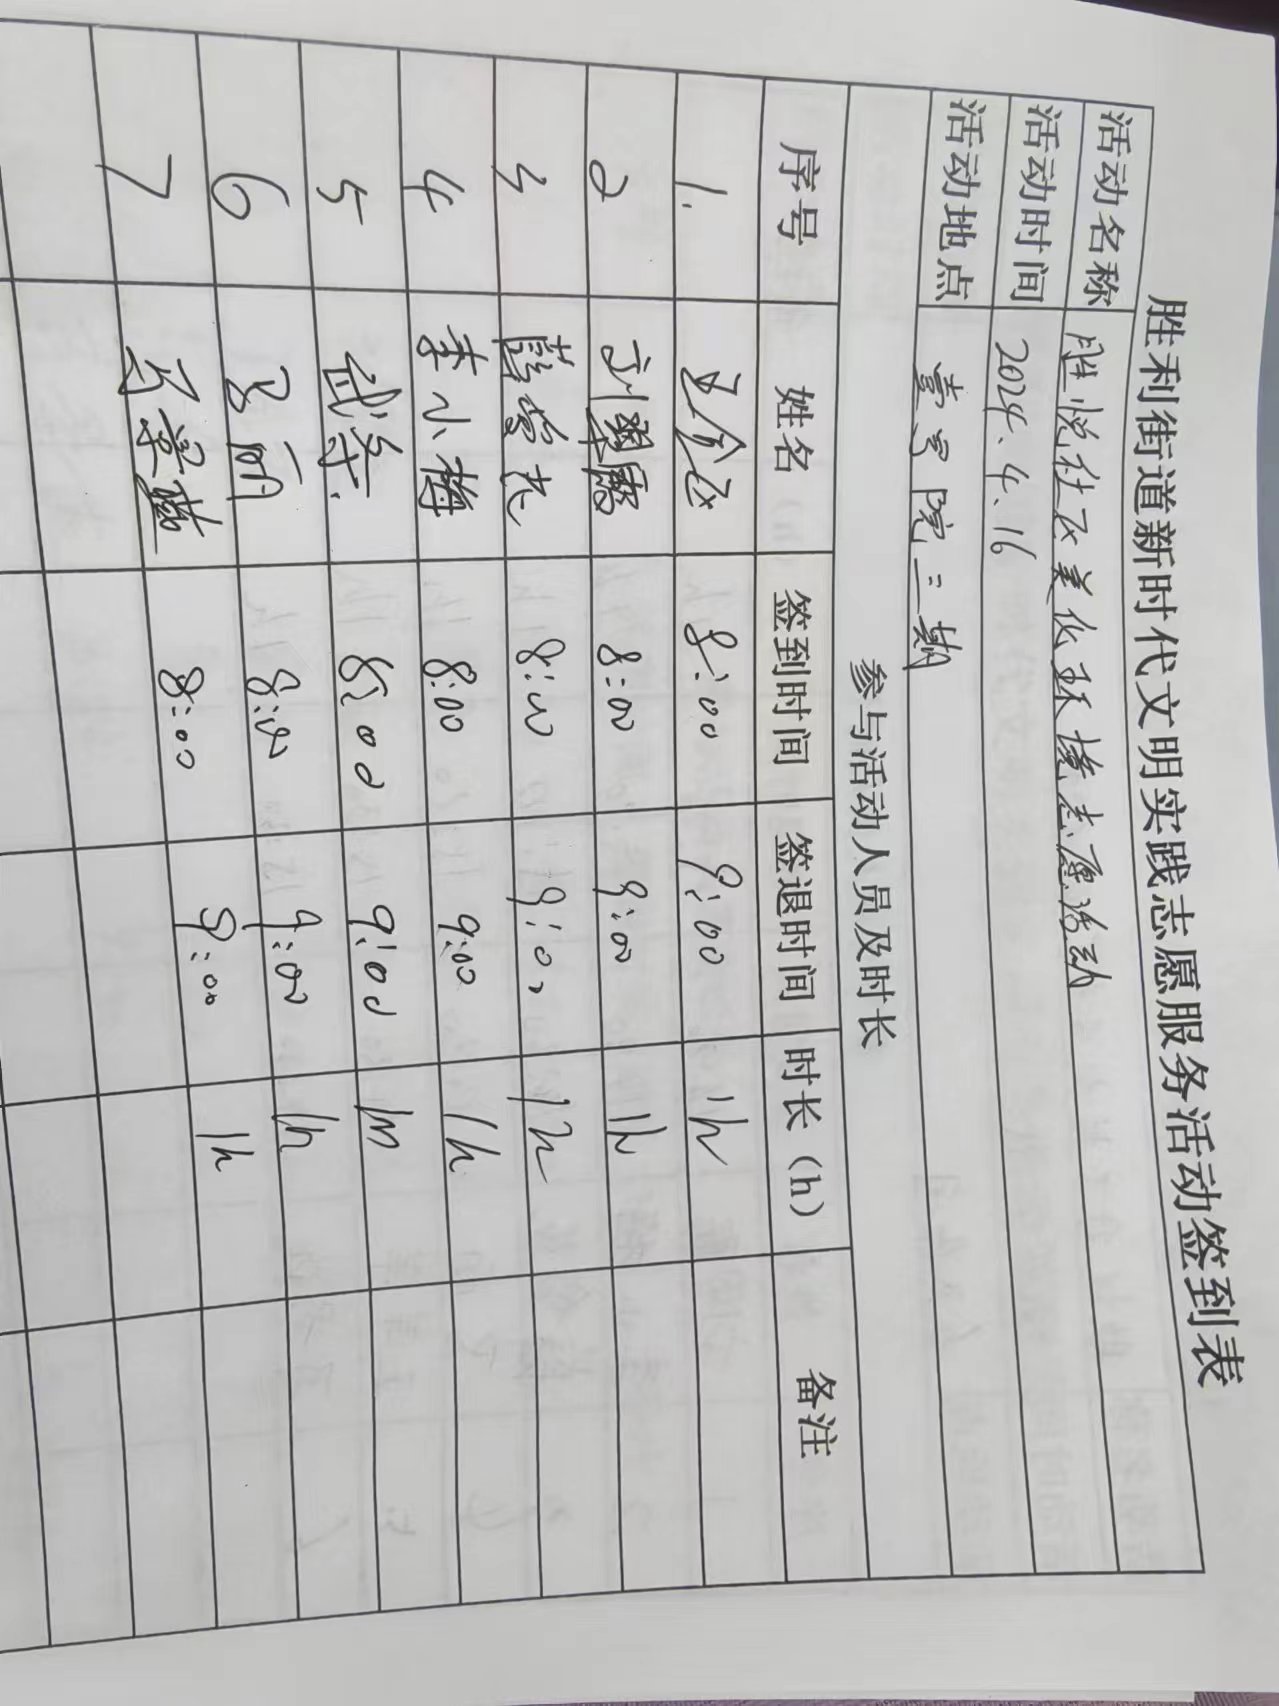 胜利街道新时代文明实践志愿服务活动签到表
活动名称 胜悦社区美化环境志愿活动
活动时间 2024.4.16
活动地点 壹号院二期
参与活动人员及时长
序号 姓名 签到时间 签退时间 时长（h） 备注
1. 8:00 9:00 1h
2 刘翠霞 8:00 9:00 1h
3 8:00 9:00 1h
4 李小梅 8:00 9:00 1h
5 武 8:00 9:00 1h
6 8:00 9:00 1h
7 8:00 9:00 1h